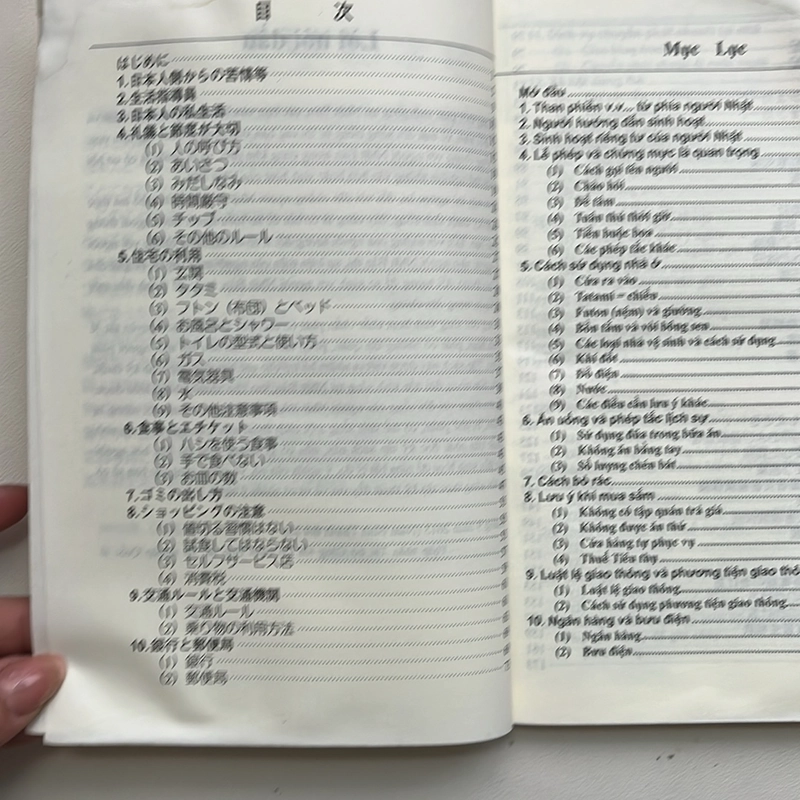 目 次
はじめに
1.日本人側からの苦情等
2.生活指導員
3.日本人の私生活
4.礼儀と節度が大切
(1) 人の呼び方
(2) あいさつ
(3) みだしなみ
(4) 時間厳守
(5) チップ
(6) その他のルール
5.住宅の利用
(1) 玄関
(2) タタミ
(3) フトン（布団）とベッド
(4) お風呂とシャワー
(5) トイレの型式と使い方
(6) ガス
(7) 電気器具
(8) 水
(9) その他注意事項
6.食事とエチケット
(1) ハシを使う食事
(2) 手で食べない
(3) お皿の数
7.ゴミの出し方
8.ショッピングの注意
(1) 値切る習慣はない
(2) 試食してはならない
(3) セルフサービス店
(4) 消費税
9.交通ルールと交通機関
(1) 交通ルール
(2) 乗り物の利用方法
10.銀行と郵便局
(1) 銀行
(2) 郵便局
Mục Lục
Mở đầu
1. Than phiền v.v... từ phía người Nhật
2. Người hướng dẫn sinh hoạt
3. Sinh hoạt riêng tư của người Nhật
4. Lễ phép và chừng mực là quan trọng
(1) Cách gọi tên người
(2) Chào hỏi
(3) Để tâm
(4) Tuân thủ thời giờ
(5) Tiền buộc boa
(6) Các phép tắc khác
5. Cách sử dụng nhà ở
(1) Cửa ra vào
(2) Tatami - chiếu
(3) Futon (nệm) và giường
(4) Bồn tắm và vòi bông sen
(5) Các loại nhà vệ sinh và cách sử dụng
(6) Khí đốt
(7) Đồ điện
(8) Nước
(9) Các điều cần lưu ý khác
6. Ăn uống và phép tắc lịch sự
(1) Sử dụng đũa trong bữa ăn
(2) Không ăn bằng tay
(3) Số lượng chén bát
7. Cách bỏ rác
8. Lưu ý khi mua sắm
(1) Không có tập quán trả giá
(2) Không được ăn thử
(3) Cửa hàng tự phục vụ
(4) Thuế Tiêu thụ
9. Luật lệ giao thông và phương tiện giao thô
(1) Luật lệ giao thông
(2) Cách sử dụng phương tiện giao thông
10. Ngân hàng và bưu điện
(1) Ngân hàng
(2) Bưu điện